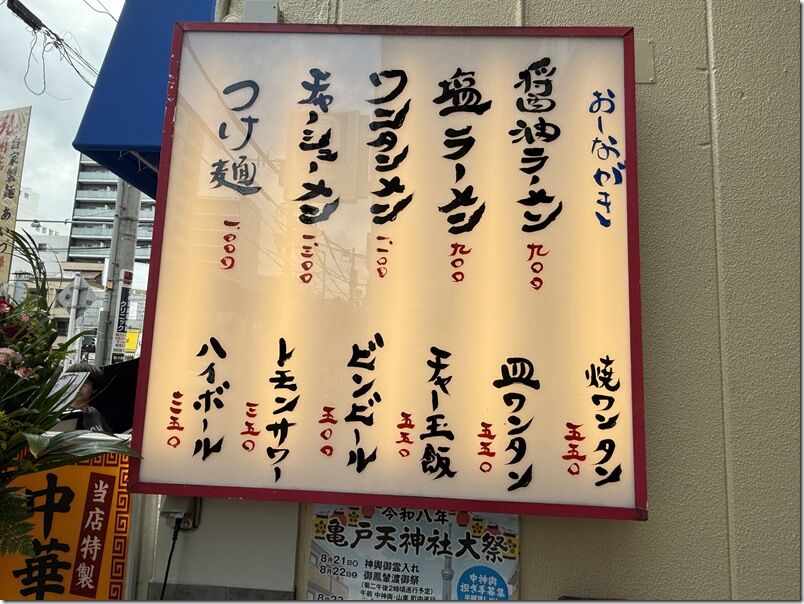 おしながき
醤油ラーメン
九〇〇
塩ラーメン
九〇〇
ワンタンメン
一、一〇〇
チャーシューメン
一、三〇〇
つけ麺
一、〇〇〇
焼ワンタン
五五〇
皿ワンタン
五五〇
チャー玉飯
五五〇
ビンビール
五〇〇
レモンサワー
三五〇
ハイボール
三五〇
自家製麺
クリニック
当店特製
中華
令和八年
亀戸天神社大祭
8月21日 神輿御霊入れ
8月22日 御鳳輦渡御祭
(菊二午後2時頃巡行予定)
午前 中神輿・山車 町内巡行
中神輿
担ぎ手募集